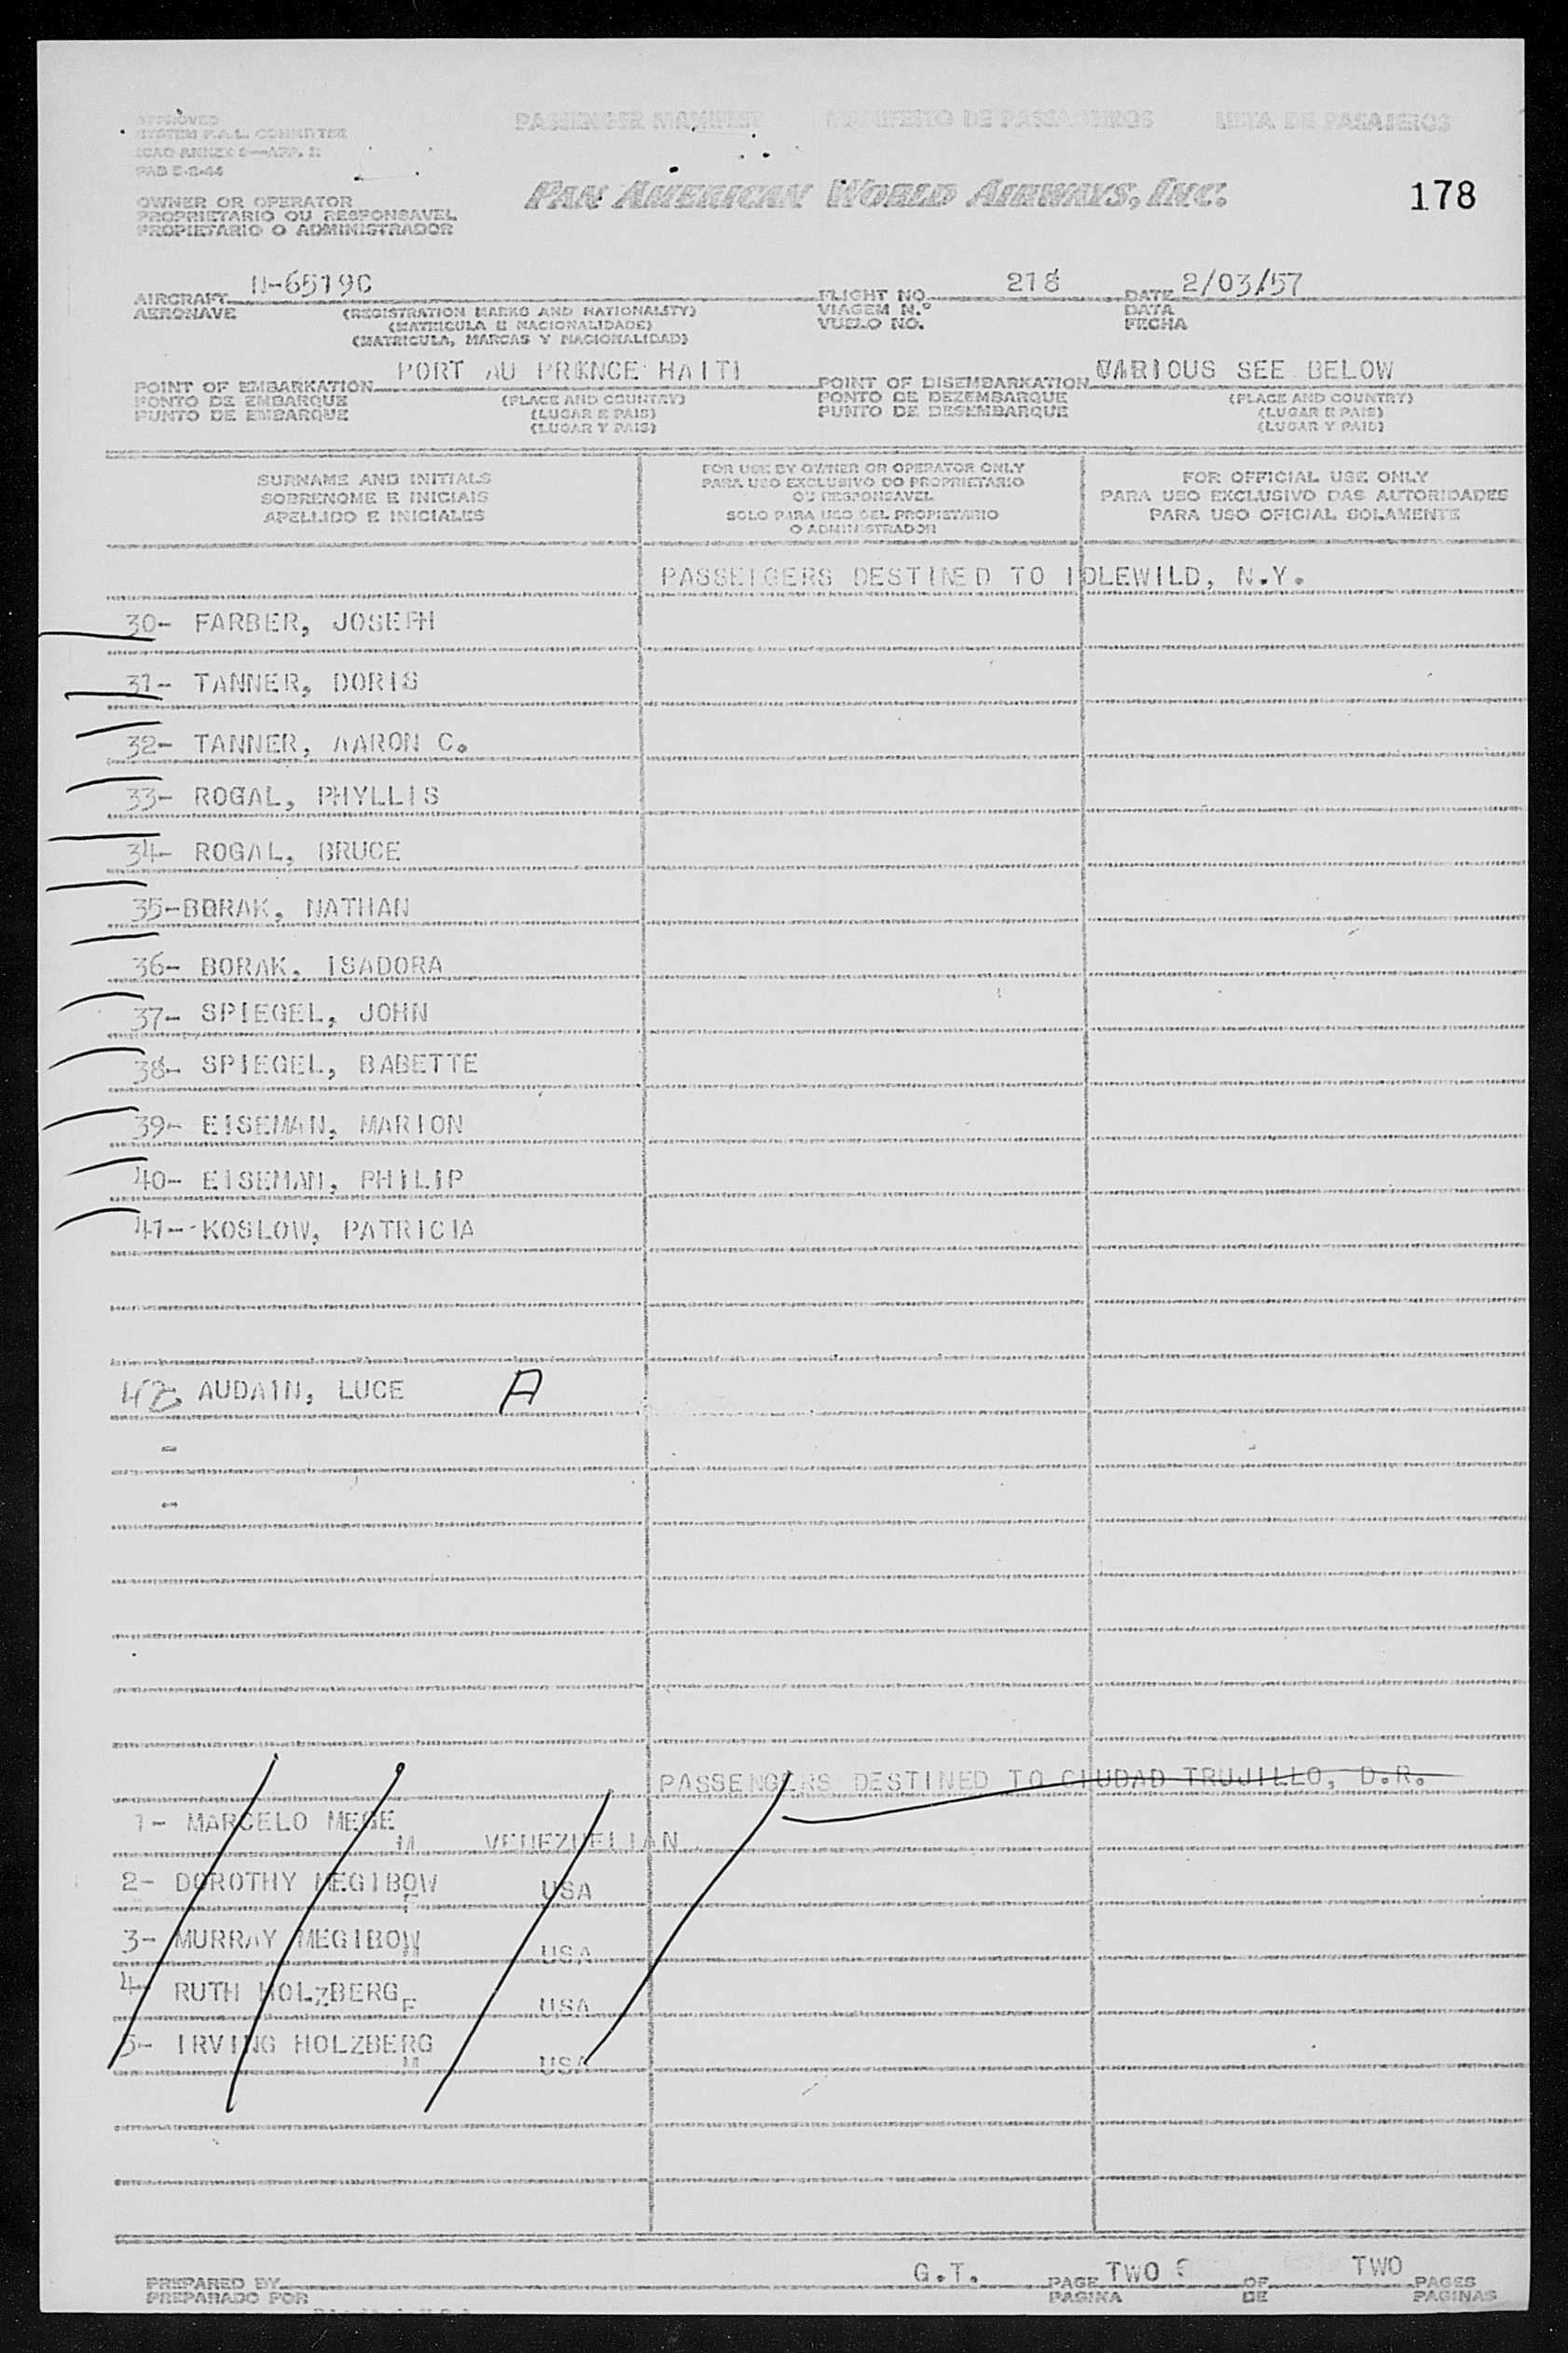 APPROVED
SYSTEM F.A.L. COMMITTEE
ICAO ANNEX 9—APP. 2
PAD 5-2-44
PASSENGER MANIFEST MANIFESTO DE PASSAGEIROS LISTA DE PASAJEROS
PAN AMERICAN WORLD AIRWAYS, INC.
178
OWNER OR OPERATOR
PROPRIETARIO OU RESPONSAVEL
PROPIETARIO O ADMINISTRADOR
AIRCRAFT N-6519C FLIGHT NO. 218 DATE 2/03/57
AERONAVE (REGISTRATION MARKS AND NATIONALITY) VIAGEM N.º DATA
(MATRICULA E NACIONALIDADE) VUELO NO. FECHA
(MATRICULA, MARCAS Y NACIONALIDAD)
POINT OF EMBARKATION PORT AU PRKNCE HAITI POINT OF DISEMBARKATION VARIOUS SEE BELOW
PONTO DE EMBARQUE (PLACE AND COUNTRY) PONTO DE DEZEMBARQUE (PLACE AND COUNTRY)
PUNTO DE EMBARQUE (LUGAR E PAIS) PUNTO DE DESEMBARQUE (LUGAR E PAIS)
(LUGAR Y PAIS) (LUGAR Y PAIS)
SURNAME AND INITIALS
SOBRENOME E INICIAIS
APELLIDO E INICIALES
FOR USE BY OWNER OR OPERATOR ONLY
PARA USO EXCLUSIVO DO PROPRIETARIO
OU RESPONSAVEL
SOLO PARA USO DEL PROPIETARIO
O ADMINISTRADOR
FOR OFFICIAL USE ONLY
PARA USO EXCLUSIVO DAS AUTORIDADES
PARA USO OFICIAL SOLAMENTE
PASSEIGERS DESTINED TO IDLEWILD, N.Y.
30- FARBER, JOSEPH
31- TANNER, DORIS
32- TANNER, AARON C.
33- ROGAL, PHYLLIS
34- ROGAL, BRUCE
35-BORAK, NATHAN
36- BORAK. ISADORA
37- SPIEGEL, JOHN
38- SPIEGEL, BABETTE
39- EISEMAN, MARION
40- EISEMAN, PHILIP
41- KOSLOW, PATRICIA
42 AUDAIN, LUCE A
-
-
PASSENGERS DESTINED TO CIUDAD TRUJILLO, D.R.
1- MARCELO MEGE M VENEZUELIAN
2- DOROTHY MEGIBOW F USA
3- MURRAY MEGIBOW M USA
4- RUTH HOLZBERG F USA
5- IRVING HOLZBERG M USA
PREPARED BY G.T. PAGE TWO OF TWO PAGES
PREPARADO POR PAGINA DE PAGINAS